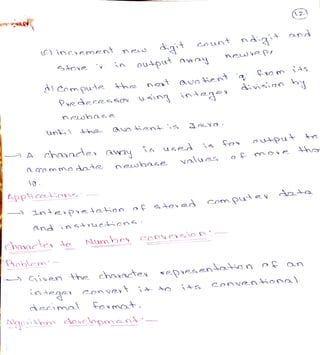 121
c) increment new digit count ndigit and
store r in output array newrep;
d) Compute the next quotient q from its
Predecessor using integer division by
newbase
until the quotient is zero.
→ A character array is used is for output to
accommodate newbase values of more than
10.
Applications:-
→ Interpretation of stored computer data
and instructions.
Character to Number conversion:-
Problem:-
→ Given the character representation of an
integer convert it to its conventional
decimal format.
Algorithm development:-